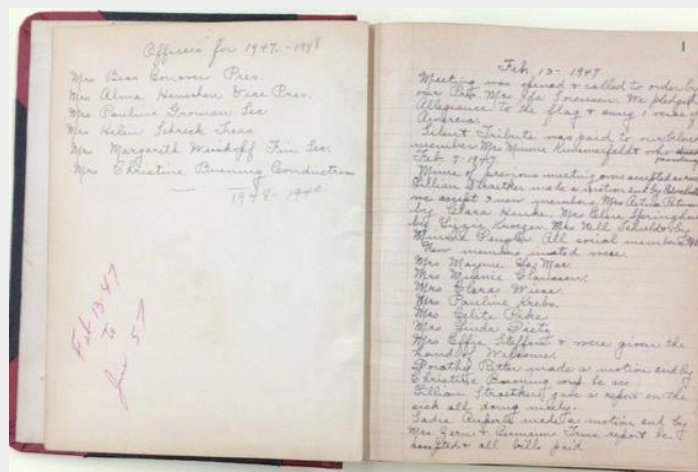 Officers for 1947-1948
Mrs Bess Conover Pres.
Mrs Alma Henschen Vice Pres.
Mrs Pauline Groman Sec.
Mrs Helen Schreck Treas
Mrs Margareth Fin Sec.
Mrs Christine Buening Conductress
1948-194
Feb 13-47
To
Jan 57
1
Feb. 13-1947
Meeting was opened & called to order by
our Pres Mrs Ida Sorensen. We pledged
Allegiance to the flag & sung 1 verse of
America.
Silent Tribute was paid to our beloved
member Mrs Minnie Kummerfeldt who
Feb 7-1947.
Minute of previous meeting was accepted as
Lillian Straetker made a motion and by
we accept 3 new members. Mrs
by Clara Mrs Elsie
by Lizzie Krueger. Mrs Nell by
Minnie All social members.
New members were
Mrs Mayme La Mar.
Mrs Minnie Claussen.
Mrs Clara Wiese.
Mrs Pauline Krebs.
Mrs Celite Pike
Mrs Linda Dietz
Mrs Effie Steffens & were given the
hand of Welcome.
Dorothy Ritter made a motion and by
Christine Buening
Lillian Straetker gave a report on the
sick all doing nicely.
Sadie made a motion and by
Mrs & Treas report be
accepted & all bills paid